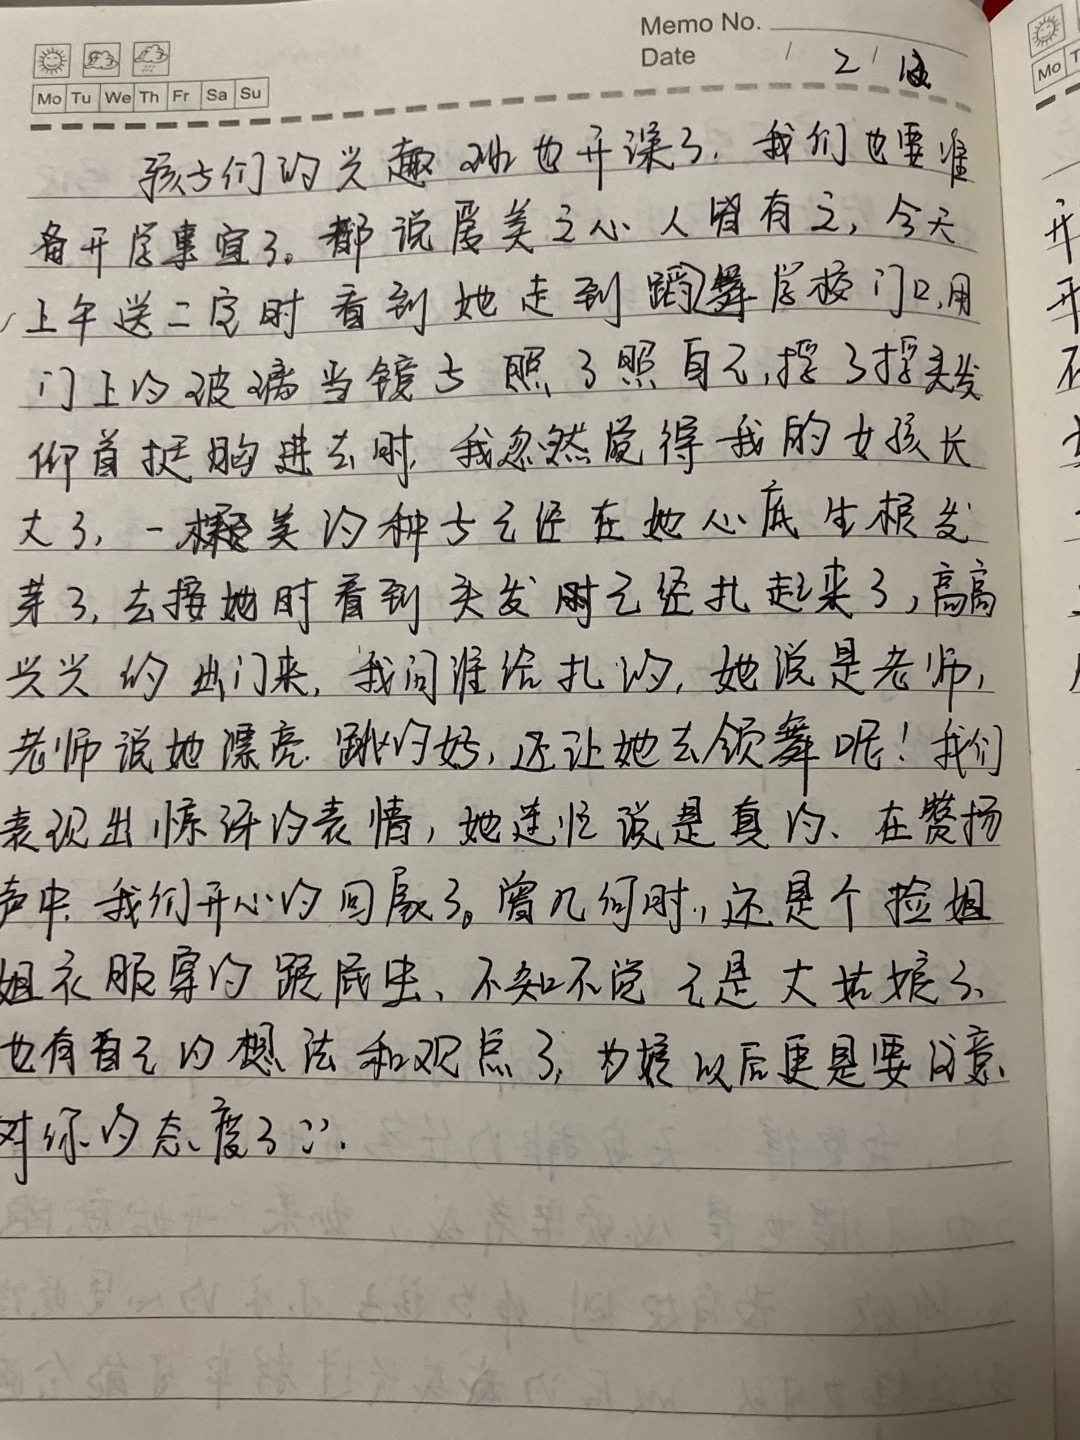 Memo No.
Date / 2 /
Mo Tu We Th Fr Sa Su
孩子们的兴趣班也开课了.我们也要准
备开学事宜了。都说爱美之心人皆有之,今天
上午送二宝时看到她走到蹈舞学校门口,用
门上的玻璃当镜子照了照自己,捋了捋头发
仰首挺胸进去时,我忽然觉得我的女孩长
大了,一颗美的种子已经在她心底生根发
芽了,去接她时看到头发时已经扎起来了,高高
兴兴的出门来,我问谁给扎的,她说是老师,
老师说她漂亮.跳的好,还让她去领舞呢!我们
表现出惊讶的表情,她连忙说是真的、在赞扬
声中.我们开心的回家了。曾几何时,还是个捡姐
姐衣服穿的跟屁虫、不知不觉已是大姑娘了、
也有自己的想法和观点了,为娘以后更是要注意
对你的态度了
Mo T